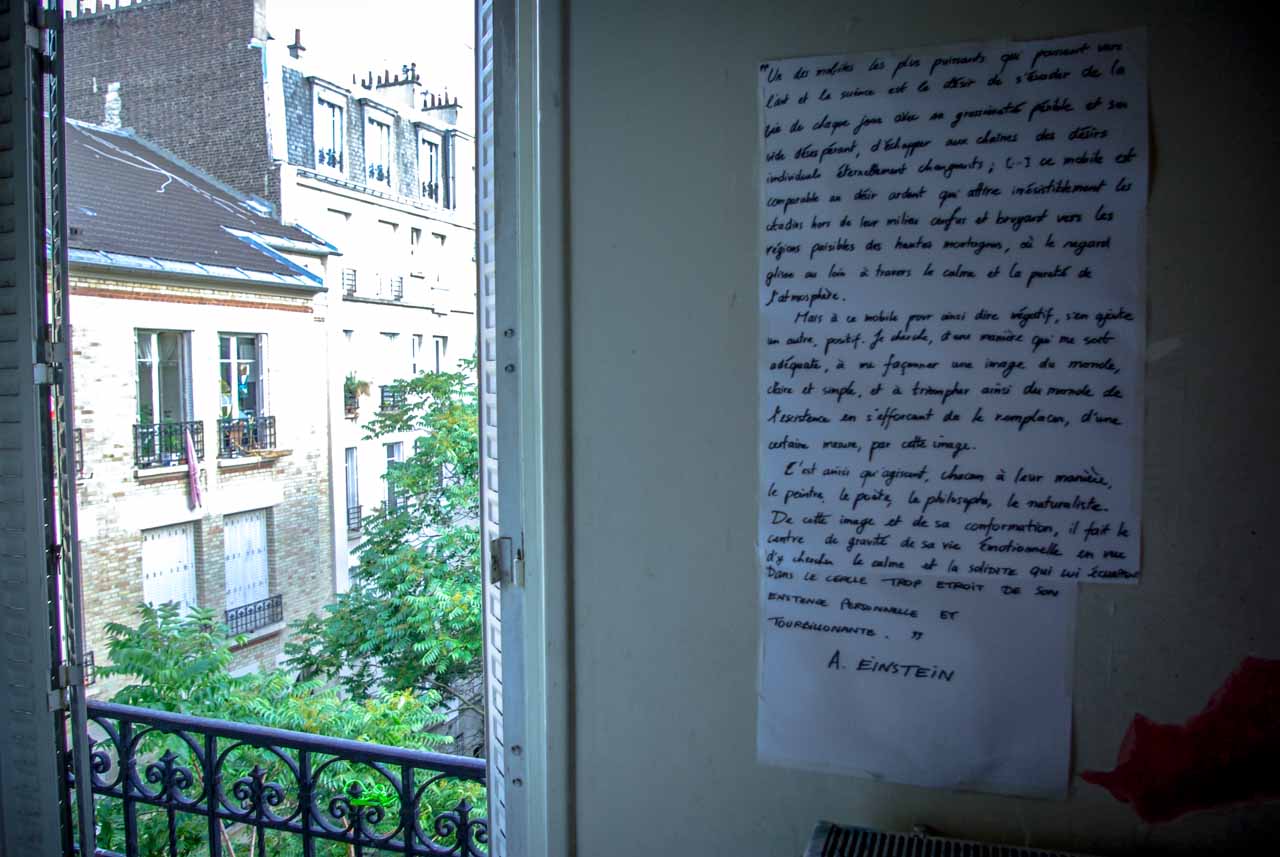 "Un des mobiles les plus puissants qui poussent vers
l'art et la science est le désir de s'évader de la
vie de chaque jour avec sa grossièreté pénible et son
vide désespérant, d'échapper aux chaînes des désirs
individuels éternellement changeants ; (...) ce mobile est
comparable au désir ardent qui attire irrésistiblement les
citadins hors de leur milieu confus et bruyant vers les
régions paisibles des hautes montagnes, où le regard
glisse au loin à travers le calme et la pureté de
l'atmosphère.
Mais à ce mobile pour ainsi dire négatif, s'en ajoute
un autre, positif. Je cherche, d'une manière qui me soit
adéquate, à me façonner une image du monde,
claire et simple, et à triompher ainsi du monde de
l'existence en s'efforçant de le remplacer, d'une
certaine mesure, par cette image.
C'est ainsi qu'agissent, chacun à leur manière,
le peintre, le poète, le philosophe, le naturaliste.
De cette image et de sa conformation, il fait le
centre de gravité de sa vie émotionnelle en vue
d'y chercher le calme et la SOLIDITÉ QUI LUI ÉCHAPPENT
DANS LE CERCLE TROP ETROIT DE SON
EXISTENCE PERSONNELLE ET
TOURBILLONANTE. "
A. EINSTEIN